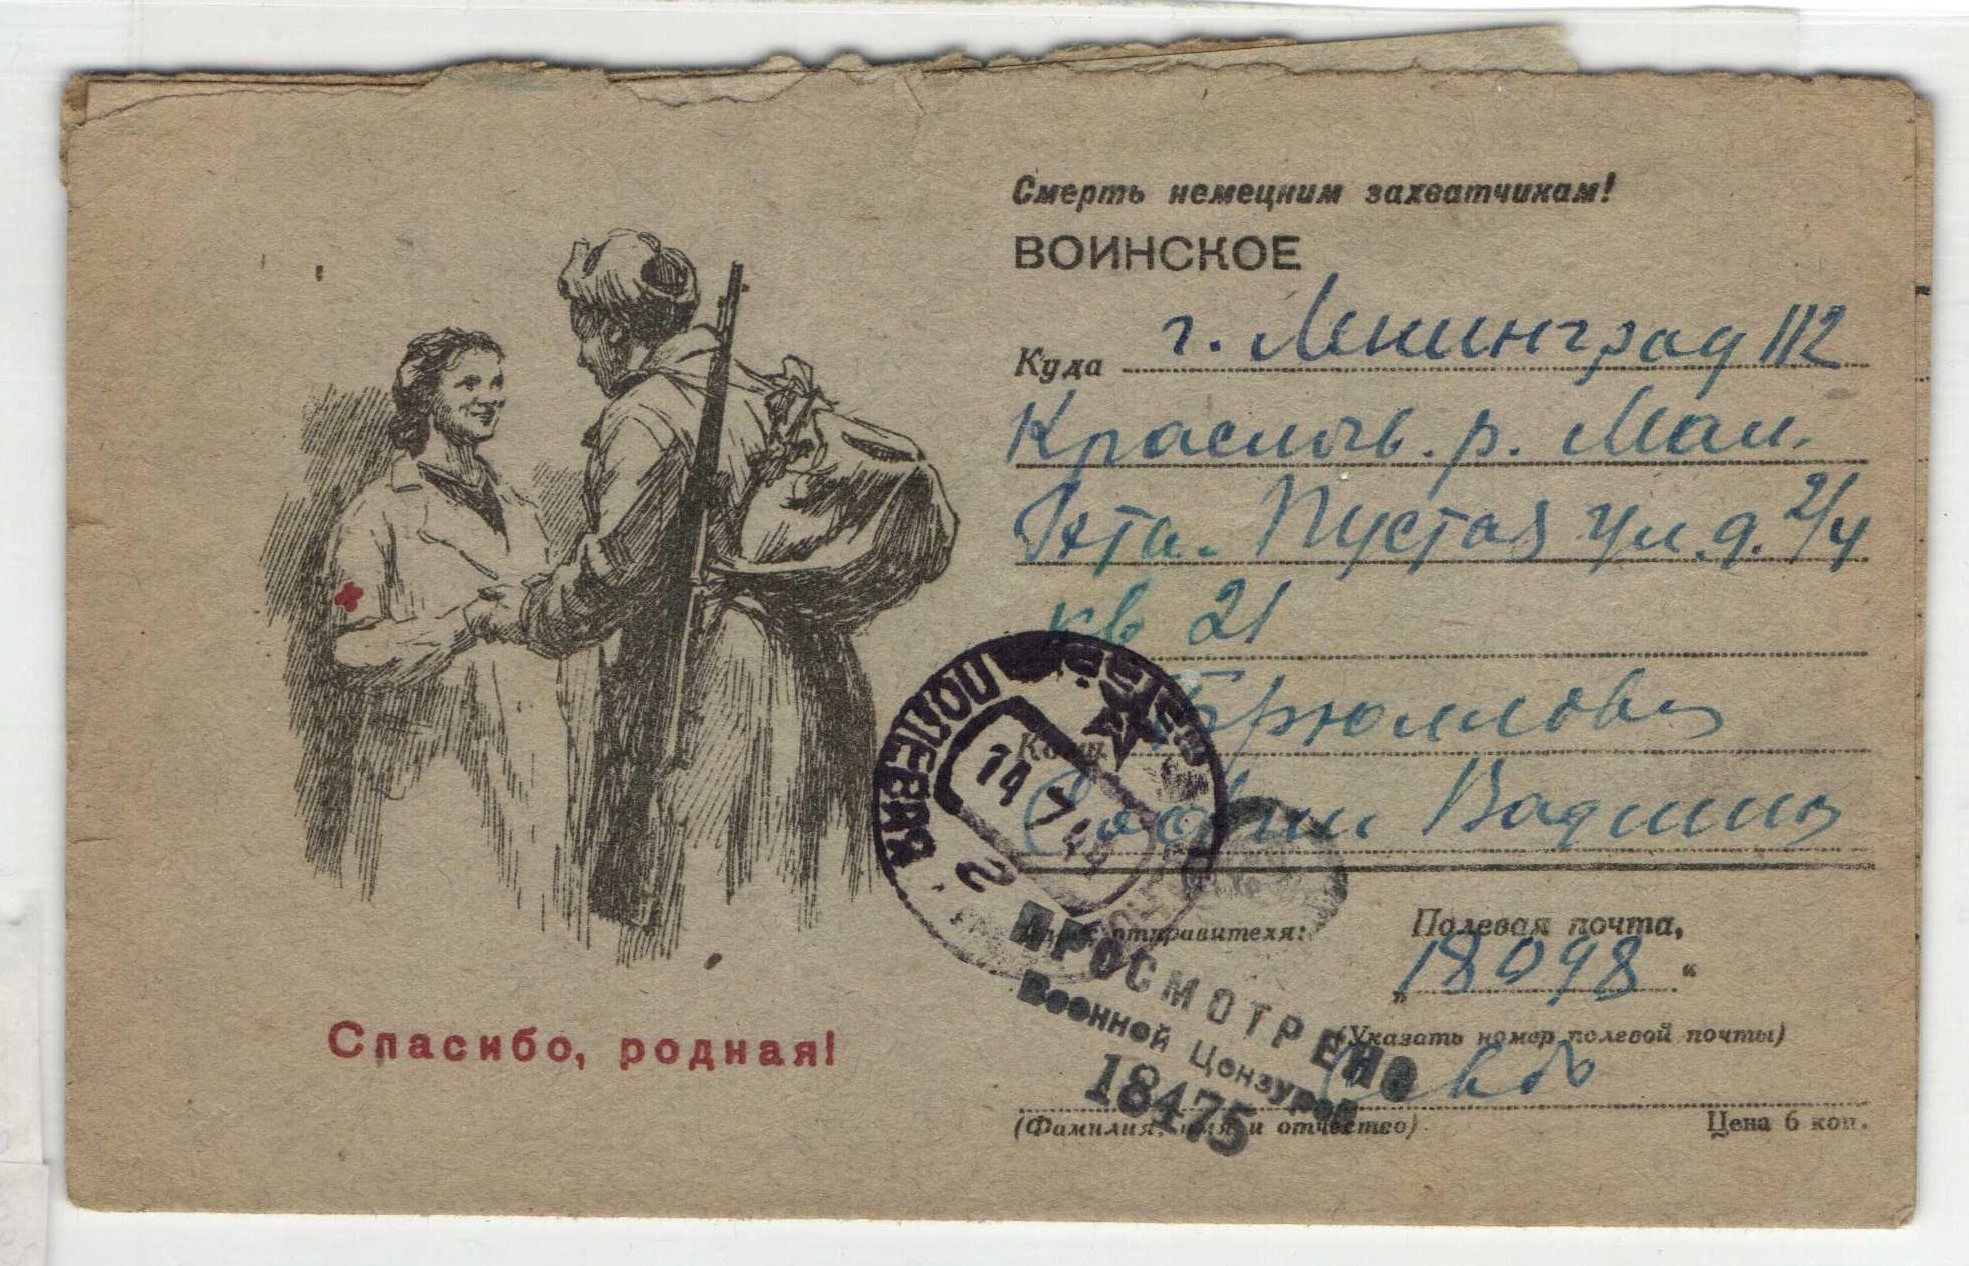 Смерть немецким захватчикам!
ВОИНСКОЕ
Куда г. Ленинград 112
р. Мал.
Пустая ул. д. 2/4
кв 21
Кому Брюлловой
Софии Вадимир
Адрес отправителя:
Полевая почта,
„18098“
(Указать номер полевой почты)
(Фамилия, имя и отчество)
Цена 6 коп.
Спасибо, родная!
ПОЛЕВАЯ
14 7 2
ПРОСМОТРЕНО
Военной Цензурой
18475